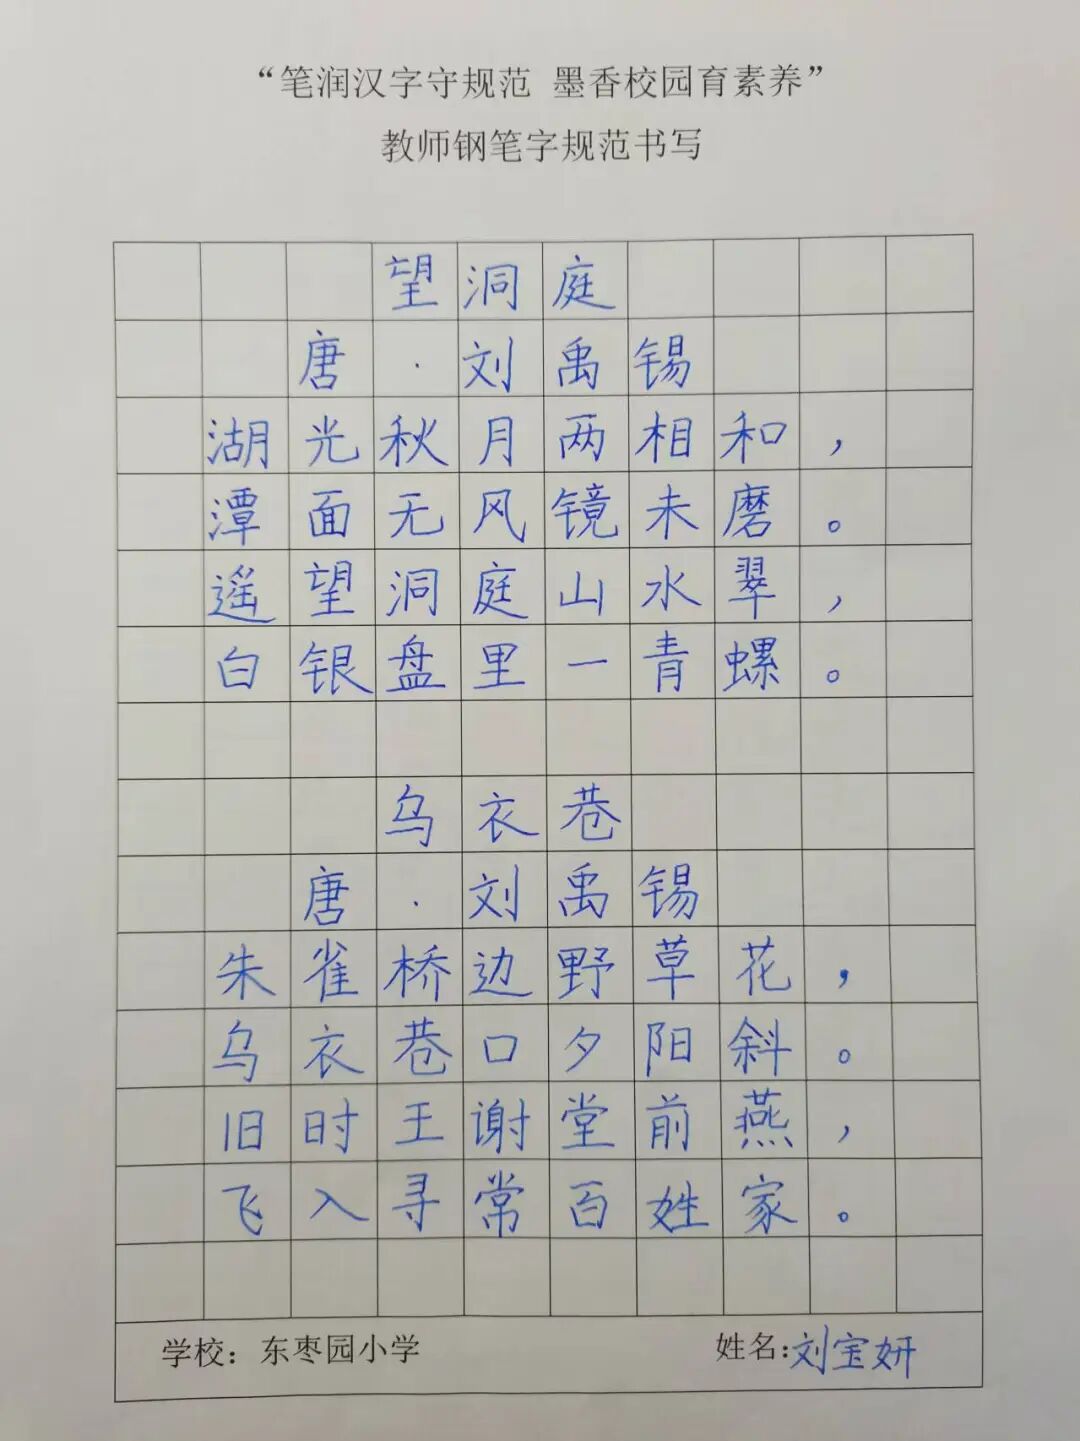 “笔润汉字守规范 墨香校园育素养”
教师钢笔字规范书写
望洞庭
唐·刘禹锡
湖光秋月两相和，
潭面无风镜未磨。
遥望洞庭山水翠，
白银盘里一青螺。
乌衣巷
唐·刘禹锡
朱雀桥边野草花，
乌衣巷口夕阳斜。
旧时王谢堂前燕，
飞入寻常百姓家。
学校：东枣园小学 姓名:刘宝妍